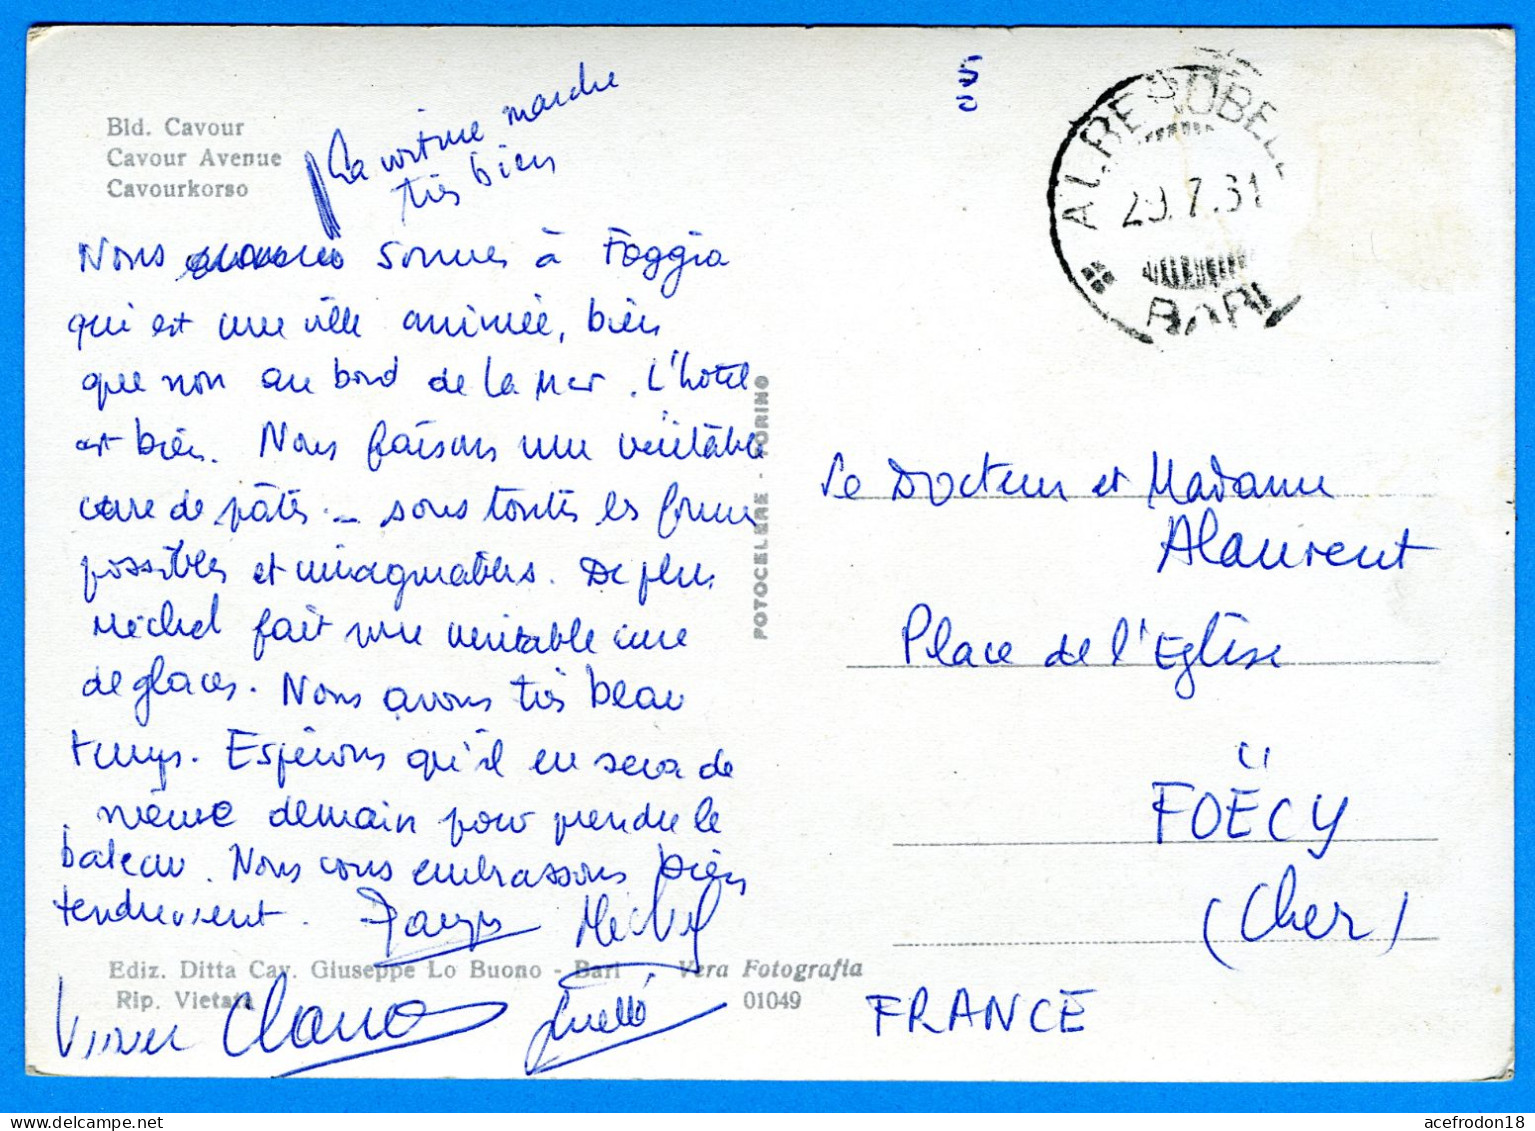 Bld. Cavour
Cavour Avenue
Cavourkorso
La voiture marche
très bien
Nous sommes à Foggia
qui est une ville animée, bien
que non au bord de la Mer. L'hôtel
est bien. Nous faisons une véritable
cure de pâtes - sous toutes les formes
possibles et imaginables. De plus
Michel fait une véritable cure
de glaces. Nous avons très beau
temps. Espérons qu'il en sera de
même demain pour prendre le
bateau. Nous vous embrassons bien
tendrement.
Michel
Ediz. Ditta Cav. Giuseppe Lo Buono - Bari Vera Fotografia
Rip. Vietata 01049
FOTOCELERE - TORINO
50
ALBEROBELLO
BARI
Le Docteur et Madame
Alaurent
Place de l'Eglise
FOËCY
(Cher)
FRANCE
acefrodon18